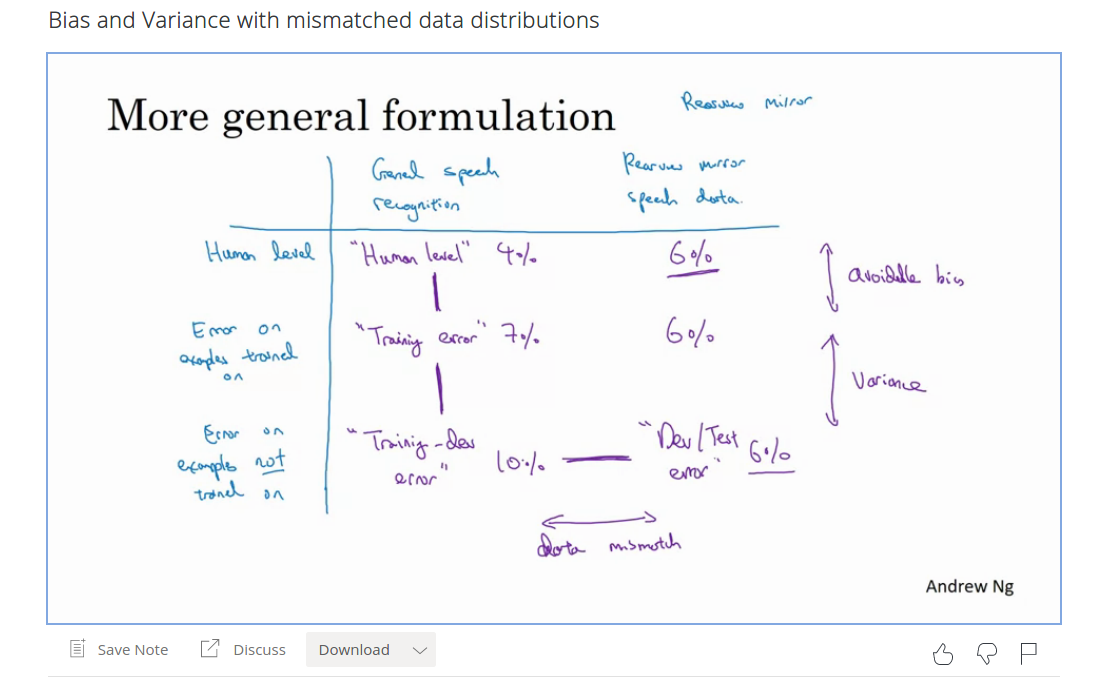 Bias and Variance with mismatched data distributions
More general formulation
Rearview mirror
General speech
recognition
Rearview mirror
speech data.
Human level
"Human level" 4%
6%
avoidable bias
Error on
examples trained
on
"Training error" 7%
6%
Variance
Error on
examples not
trained on
"Training-dev
error" 10%
"Dev/Test
error" 6%
data mismatch
Andrew Ng
Save Note
Discuss
Download